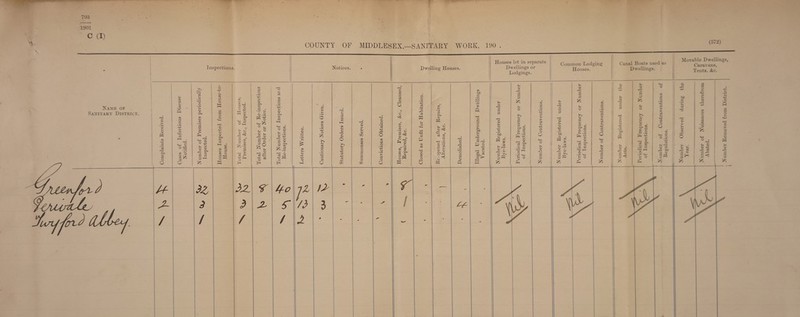 798
1908
C (I)
COUNTY OF MIDDLESEX.—SANITARY WORK, 190 .
(273)
NAME OF
SANITARY DISTRICT.
Inspections.
Notices.
Dwelling Houses.
Houses let in separate
Dwellings or
Lodgings.
Common Lodging
Houses.
Canal Boats used as
Dwellings.
Movable Dwellings,
Caravans,
Tents, &c.
Complaints Received.
Cases of Infectious Disease
Notified.
Number of Premises periodically
Inspected.
Houses Inspected from House-to-
House.
Total Number of Houses,
Premises, &c., Inspected.
Total Number of Re-inspections
after Order or Notice.
Total Number of Inspections and
Re-inspections.
Letters Written.
Cautionary Notices Given.
Statutory Orders Issued.
Summonses Served.
Convictions Obtained.
Houses, Premises, &c., Cleansed,
Repaired, &c.
Closed as Unfit for Habitation.
Re-opened after Repairs,
Alterations, &c.
Demolished.
Illegal Underground Dwellings
Vacated.
Number Registered under
Bye-laws.
Periodical Frequency or Number
of Inspections.
Number of Contraventions.
Number Registered under
Bye-laws.
Periodical Frequency or Number
of Inspections.
Number of Contraventions.
Number Registered under the
Acts.
Periodical Frequency or Number
of Inspections.
Number of Contraventions of
Regulations.
Number Observed during the
Year.
Number of Nuisances therefrom
Abated.
Number Removed from District.
Greenford 4 32 32 8 40 72 12 8
Perivale 2 3 3 2 5 13 3 1 4 Nil Nil Nil Nil
Twyford Abbey. 1 1 1 1 2